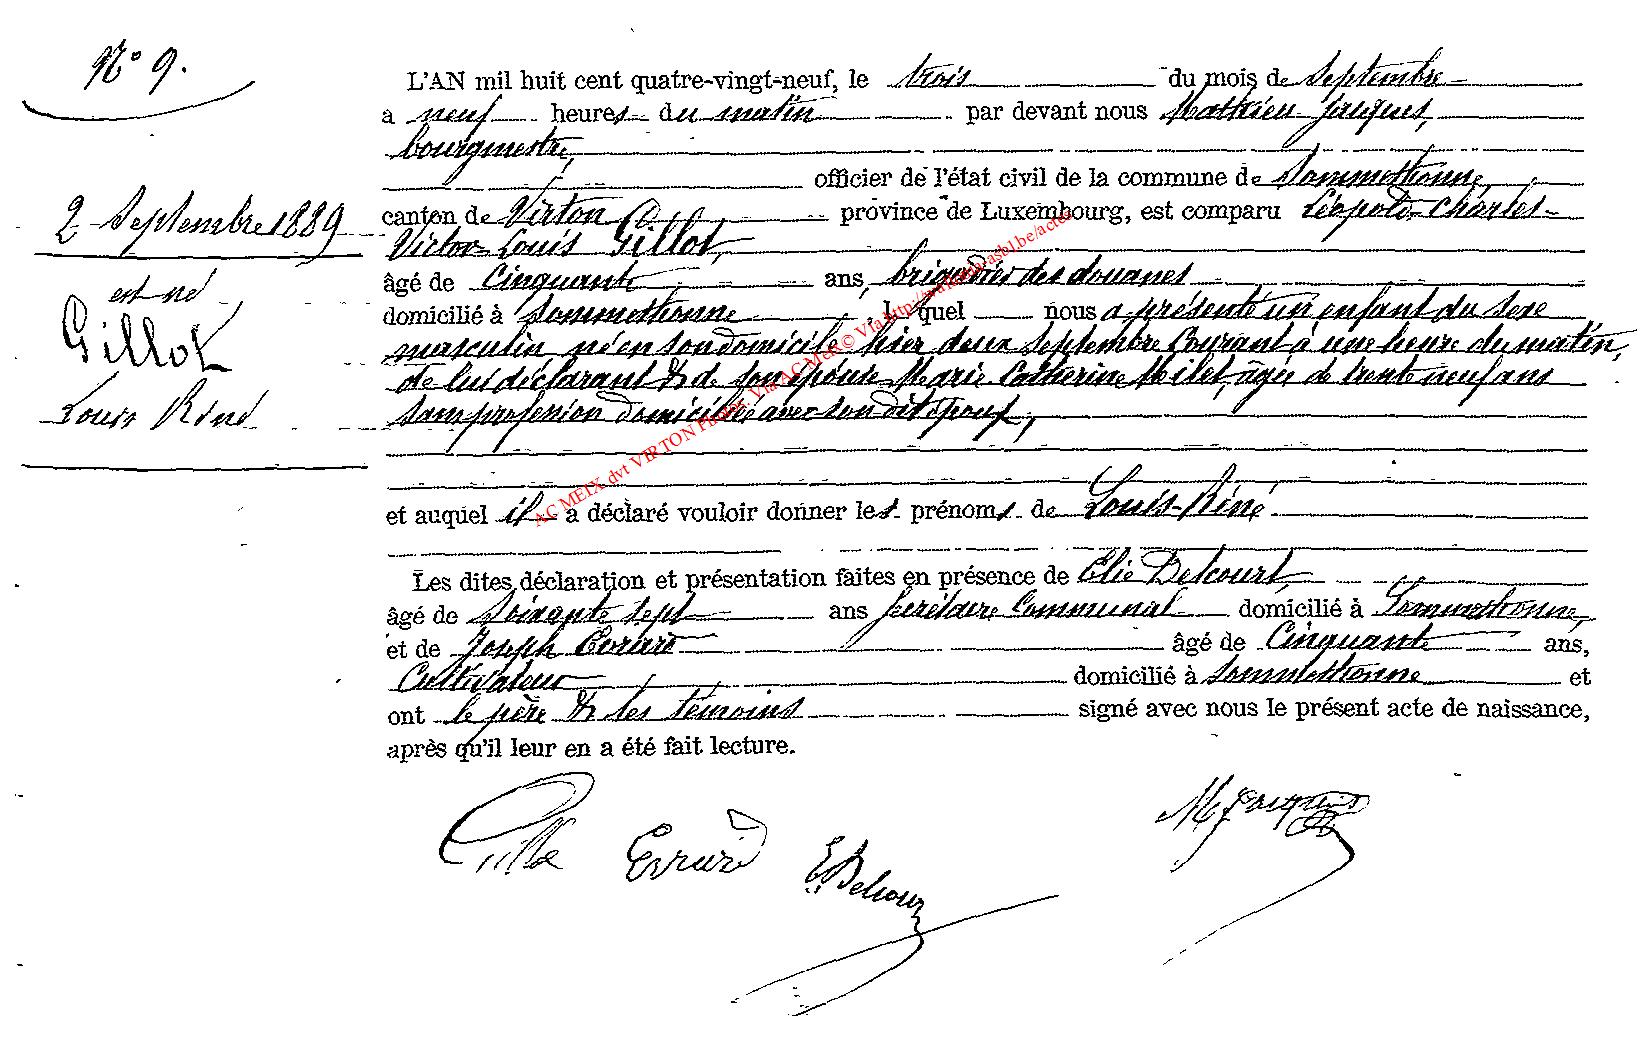 N° 9.
2 Septembre 1889
est né
Gillot
Louis Réné
L'AN mil huit cent quatre-vingt-neuf, le trois du mois de Septembre
a neuf heures du matin par devant nous Mathieu Jacques,
bourgmestre,
officier de l'état civil de la commune de Sommethonne,
canton de Virton province de Luxembourg, est comparu Léopold-Charles-
Victor-Louis Gillot,
âgé de Cinquante ans, brigadier des douanes
domicilié à Sommethonne lequel nous a présenté un enfant du sexe
masculin, né en son domicile hier deux Septembre Courant à une heure du matin,
de lui déclarant & de son épouse Marie Catherine Milet, agée de trente neuf ans
sans profession domiciliée avec son dit époux,
et auquel il a déclaré vouloir donner les prénoms de Louis-Réné.
Les dites déclaration et présentation faites en présence de Elie Delcourt,
âgé de Soixante sept ans secrétaire Communal domicilié à Sommethonne,
et de Joseph Evrard âgé de Cinquante ans,
Cultivateur domicilié à Sommethonne et
ont le père & les témoins signé avec nous le présent acte de naissance,
après qu'il leur en a été fait lecture.
Evrard E. Delcour M Jacques
AC MEIX dvt VIRTON